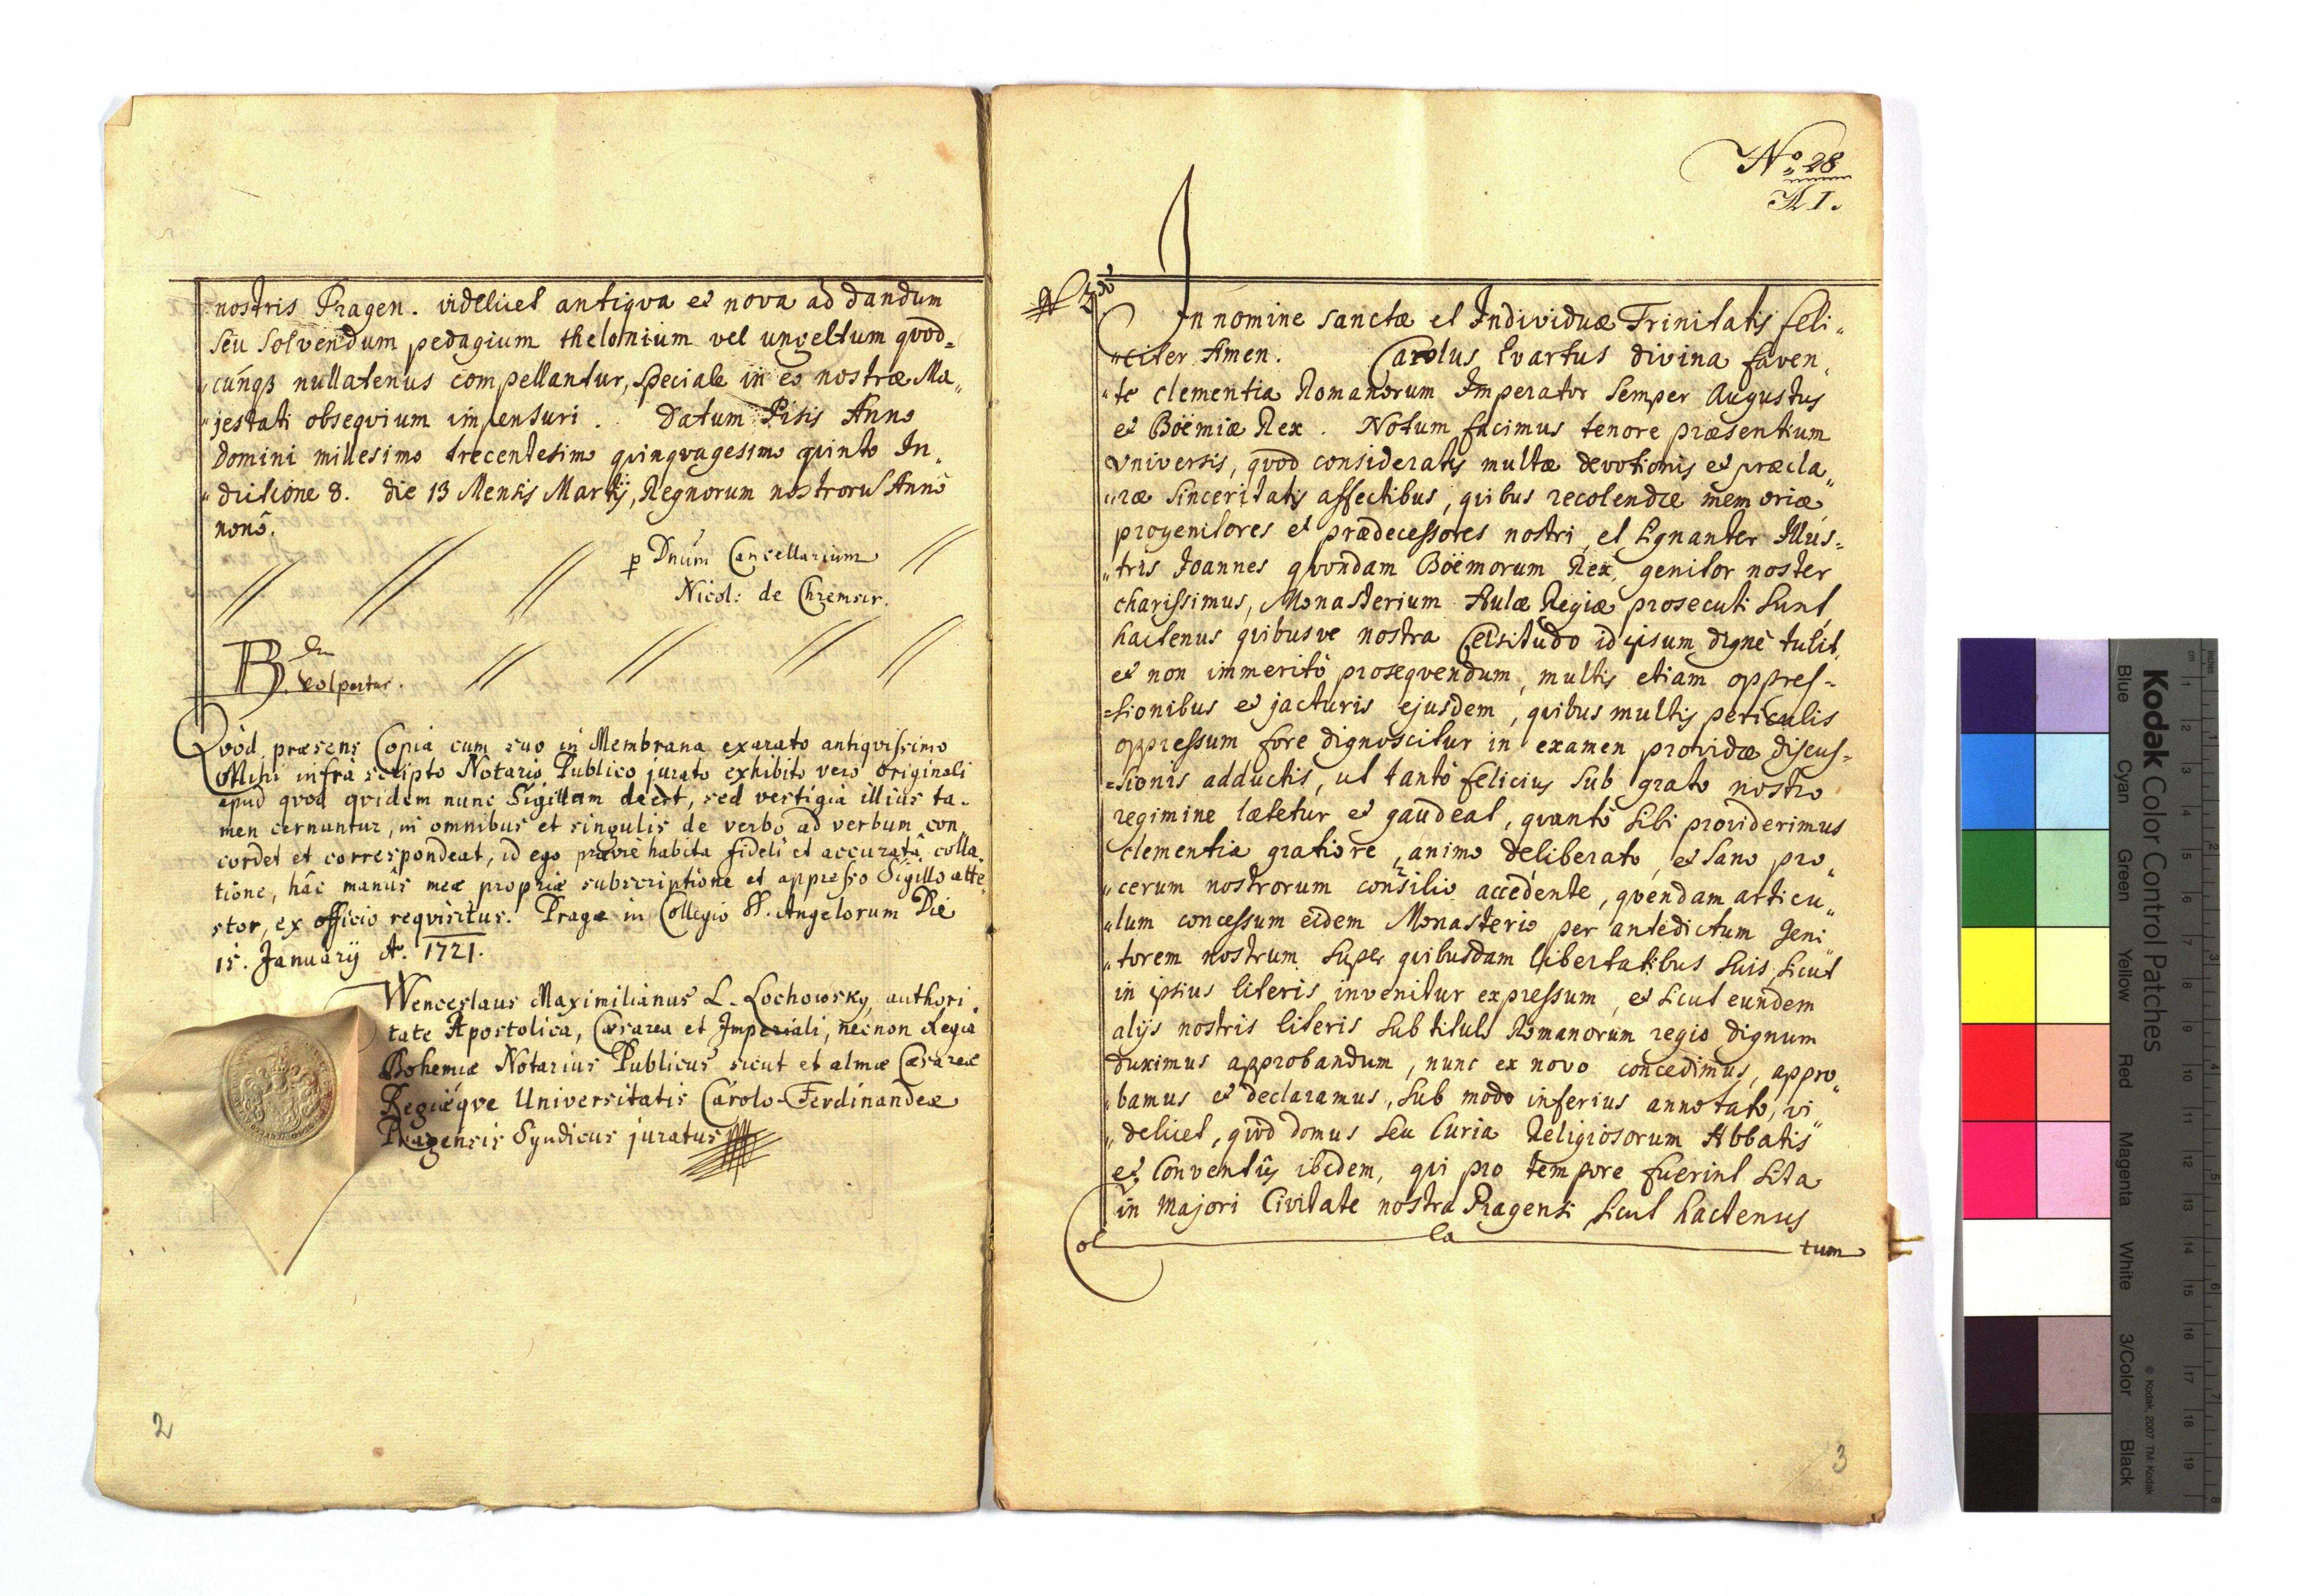 nostris Pragen. videlicet antiqva et nova ad dandum
seu solvendum pedagium thelonium vel ungeltum qvod=
cunq3 nullatenus compellantur, speciale in eo nostræ Ma„
„jestati obseqvium impensuri. Datum Pisis Anno
Domini millesimo trecentesimo qvinqvagesimo qvinto In„
„dictione 8. die 13 Mensis Martij, Regnorum nostroru Anno
nonò.
p Dnum Cancellarium
Nicol: de Chremsir.
Rta
volpertus.
Qvòd præsens Copia cum suo in Membrana exarato antiqvissimo
Mihi infrà scripto Notario Publico jurato exhibito vero originali
apud qvod qvidem nunc Sigillum deest, sed vestigia illius ta-
men cernuntur, in omnibus et singulis de verbo ad verbum con„
cordet et correspondeat, id ego prævie habita fideli et accuratâ colla„
tione, hâc manûs meæ propriæ subscriptione et appresso Sigillo atte„
stor, ex officio reqvisitus. Pragæ in Collegio SS. Angelorum Die
15. January Ao. 1721.
Wenceslaus Maximilianus L. Lochowsky, authori„
tate Apostolica, Cæsarea et Imperiali, necnon Regia
Bohemiæ Notarius Publicus sicut et almæ Cæsareæ
Regiæqve Universitatis Carolo-Ferdinandeæ
Pragensis Syndicus juratus
2
No. 28
A I.
In nomine sanctæ et Individuæ Trinitatis feli„
„citer Amen. Carolus Qvartus divina faven„
„te clementia Romanorum Imperator semper Augustus
et Böemiæ Rex. Notum facimus tenore præsentium
Vniversis, qvod consideratis multæ devotionis et præcla„
„ræ sinceritatis affectibus, qvibus recolendæ memoriæ
progenitores et prædecessores nostri, et signanter Illus=
„tris Joannes qvondam Böemorum Rex, genitor noster
charissimus, Monasterium Aulæ Regiæ prosecuti sunt
hactenus qvibusve nostra Celsitudo id ipsum dignè tulit
et non immeritò proseqvendum, multis etiam oppres=
=sionibus et jacturis ejusdem, qvibus multis periculis
oppressum fore dignoscitur in examen providæ discus=
=sionis adductis, ut tantò felicius sub grato nostro
regimine lætetur et gaudeat, qvantò sibi providerimus
clementia gratiore, animo deliberato, et sano pro„
„cerum nostrorum consilio accedente, qvendam articu„
„lum concessum eidem Monasterio per antedictum Geni„
„torem nostrum super qvibusdam libertatibus suis, sicut
in ipsius literis invenitur expressum, et sicut eundem
alijs nostris literis sub titulo Romanorum regio dignum
duximus approbandum, nunc ex novo concedimus, appro„
„bamus et declaramus, sub modo inferius annotato, vi„
„delicet, qvòd domus seu Curia Religiosorum Abbatis
et Conventûs ibidem, qvi pro tempore fuerint sita
in majori Civitate nostra Pragensi sicut hactenus
ol la tum
3